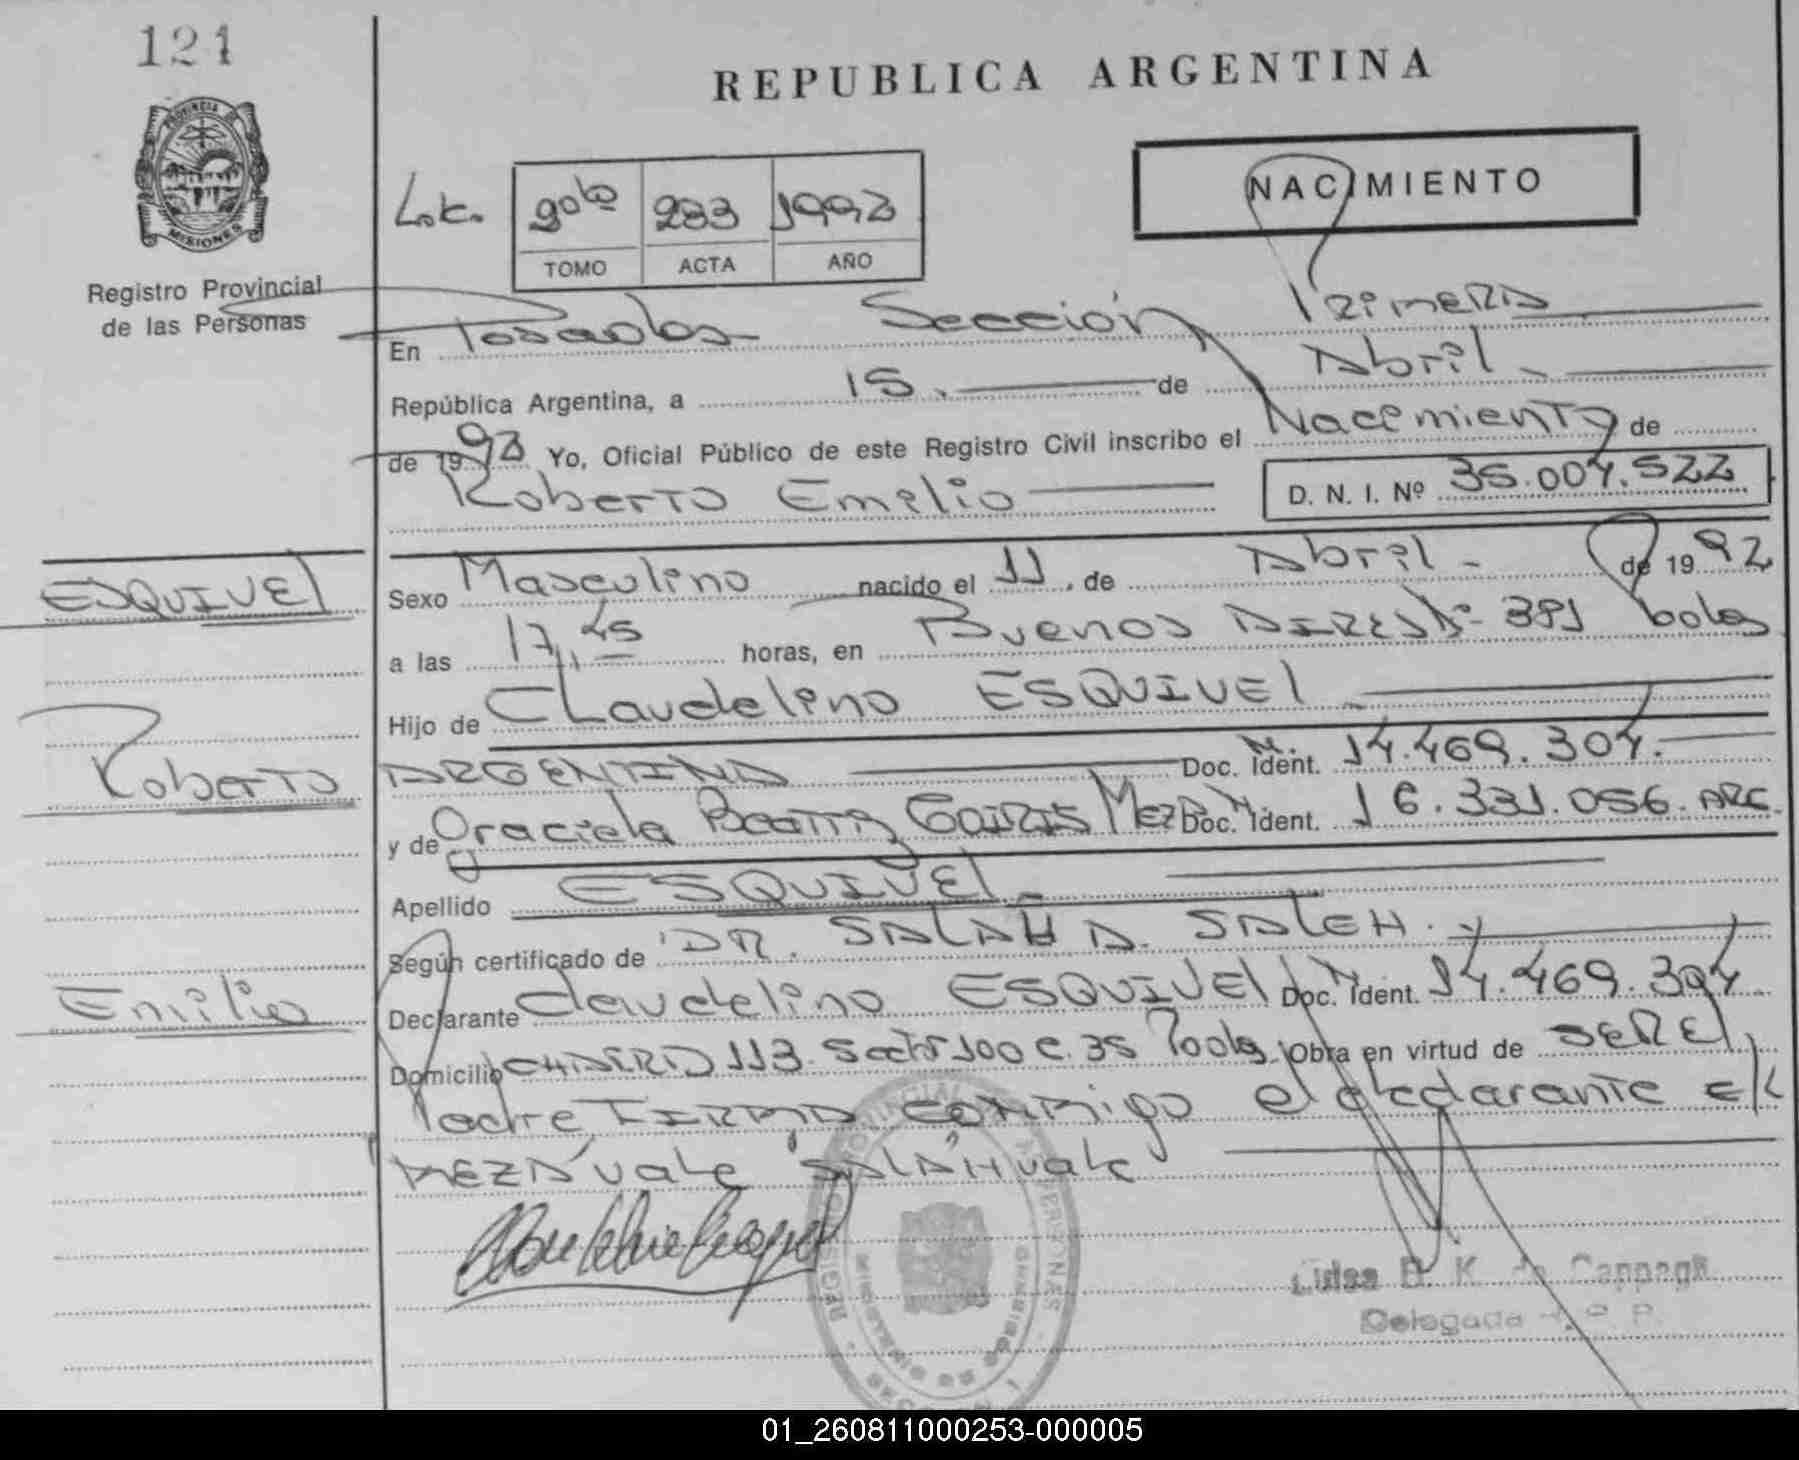 121
REPUBLICA ARGENTINA
PROVINCIA DE
MISIONES
Registro Provincial
de las Personas
NACIMIENTO
283 1992
TOMO ACTA AÑO
En Posadas Sección Primera
República Argentina, a 15. de Abril
de 1992 Yo, Oficial Público de este Registro Civil inscribo el Nacimiento de
Roberto Emilio
D. N. I. Nº 35.004.522
ESQUIVEL
Roberto
Emilio
Sexo Masculino nacido el 11, de Abril - de 1992
a las 17,45 horas, en Buenos AIRES Nº 391
Hijo de Claudelino ESQUIVEL
ARGENTINA Doc. Ident. 14.469.304.
y de Graciela Beatriz Doc. Ident. 16.331.056. ARG.
Apellido ESQUIVEL
Según certificado de DR. SALAH A. SALEH.
Declarante Claudelino ESQUIVEL Doc. Ident. 14.469.304
Domicilio CHACRA 113. 100 C. 35 Obra en virtud de SER El
Padre FIRMA CONMIGO el declarante
MEZA vale SALAH vale
Delegada
01_260811000253-000005